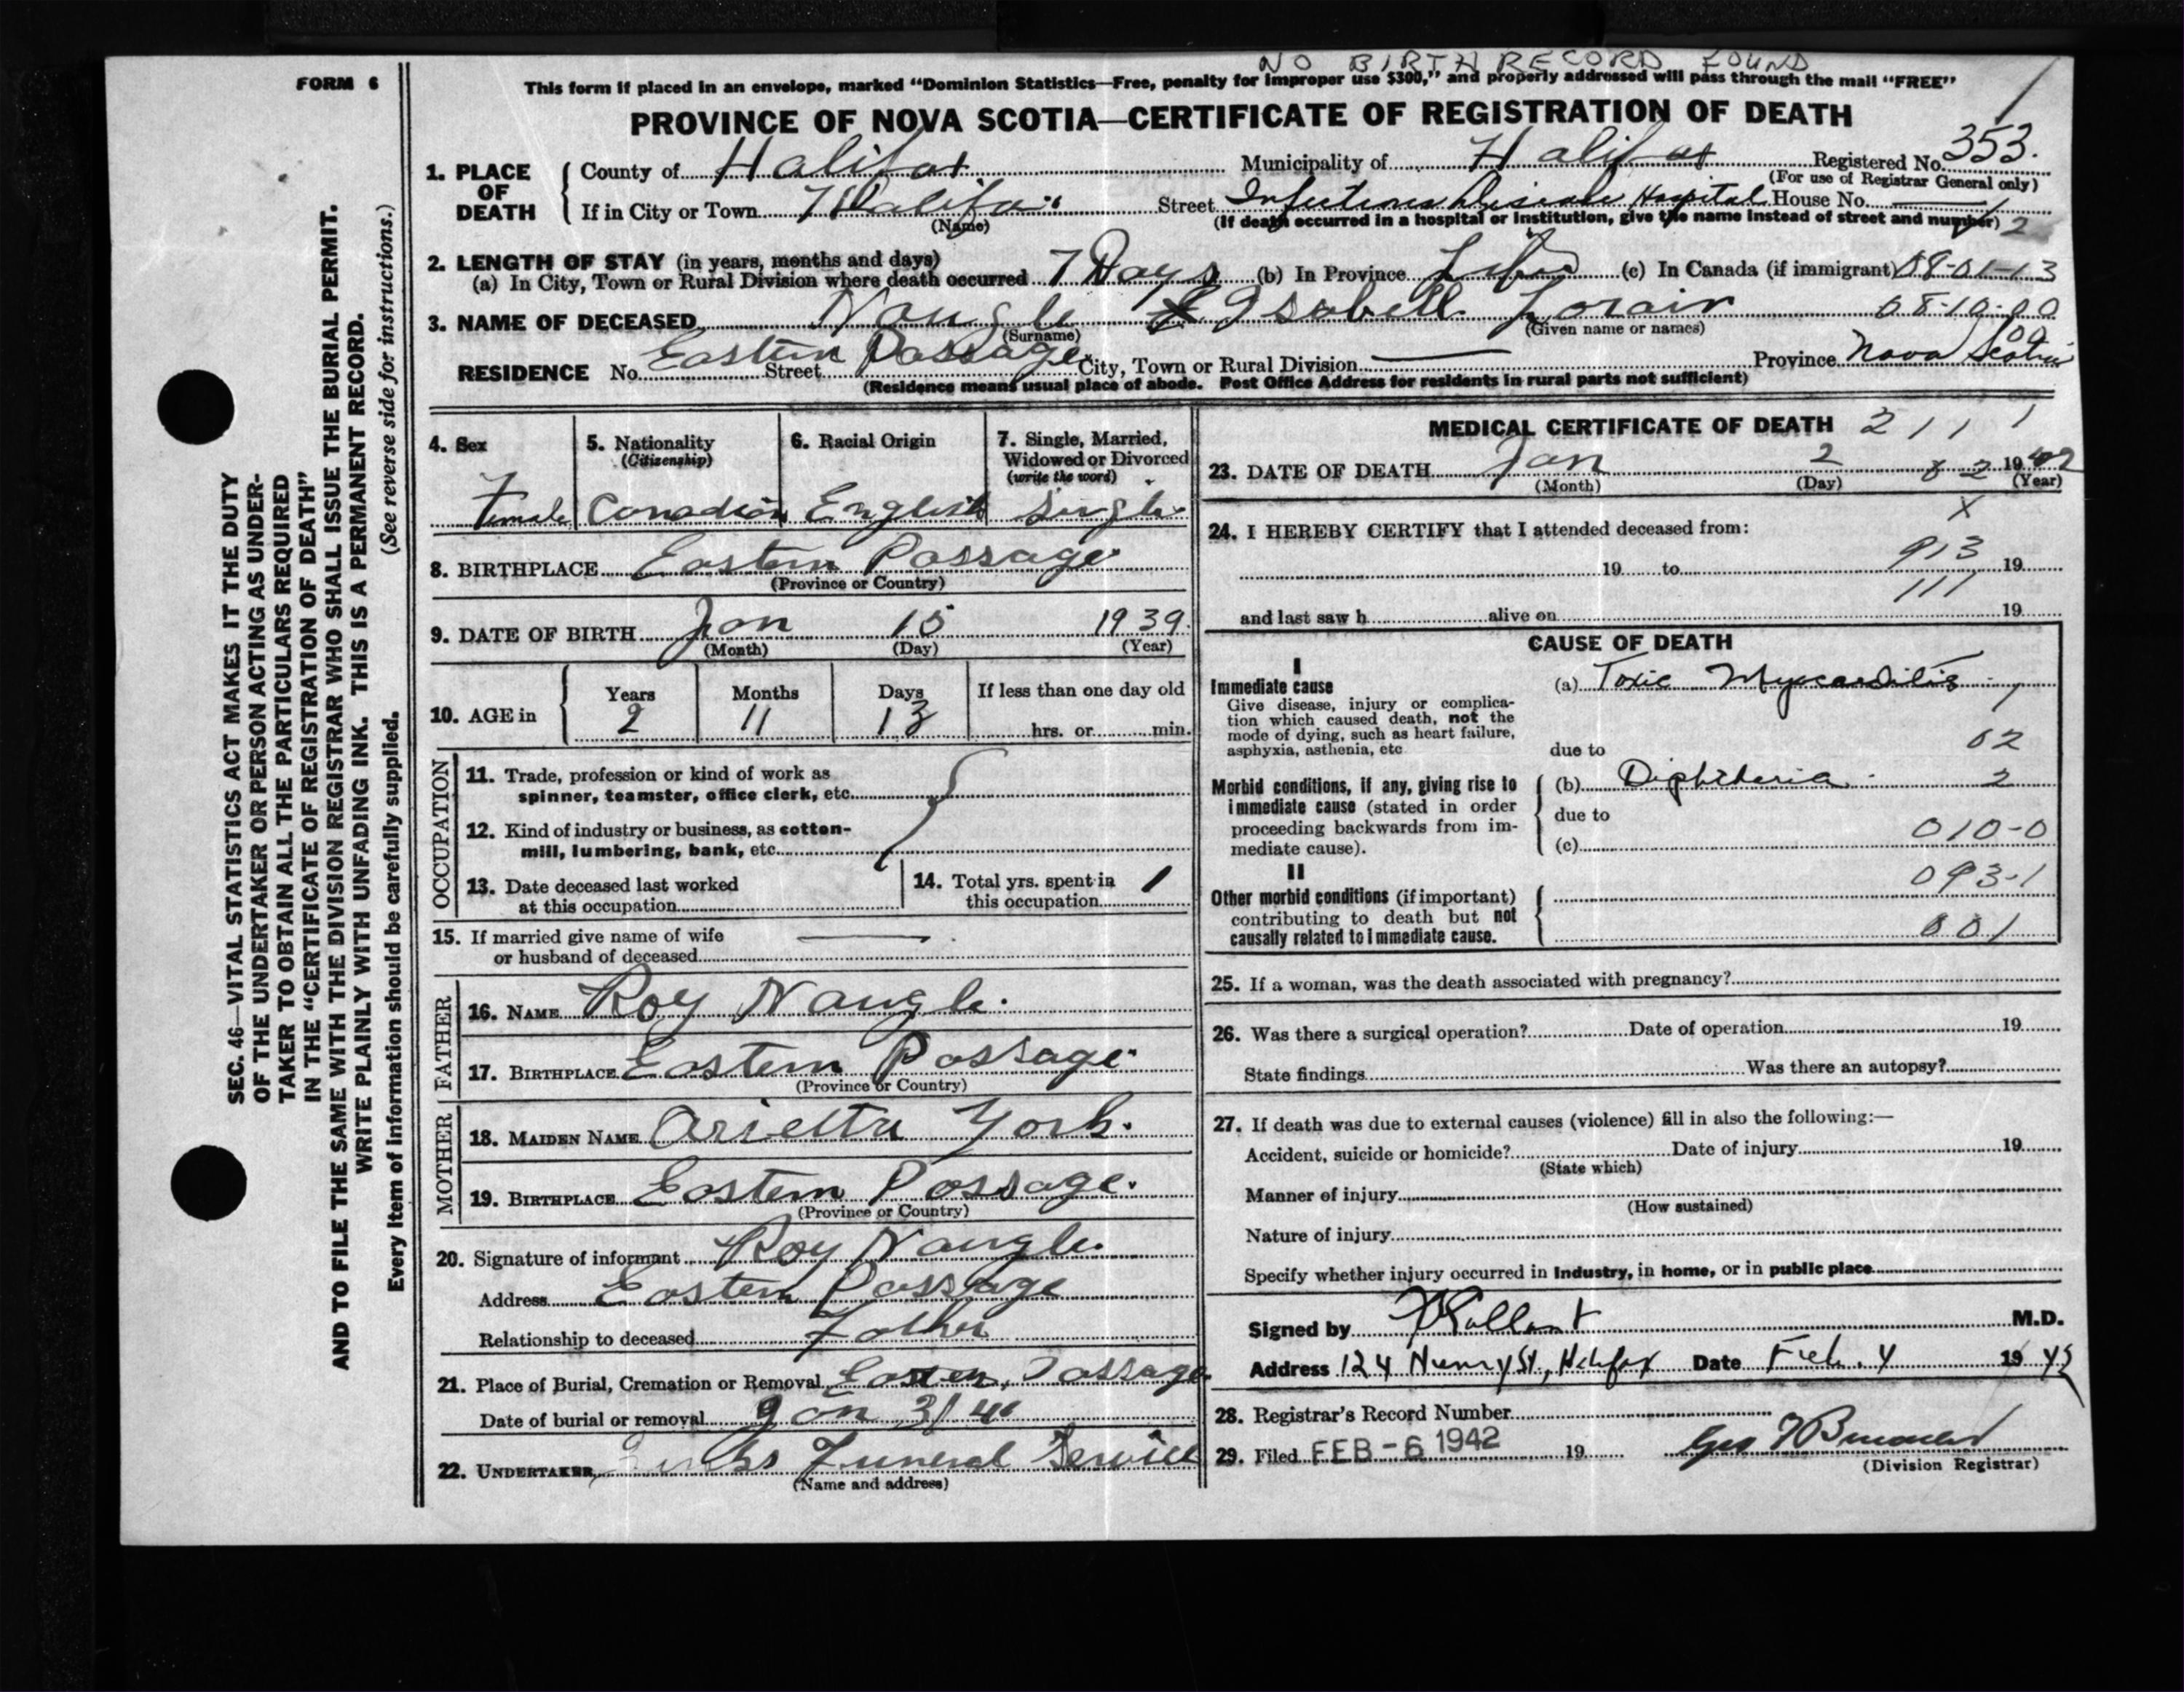 NO BIRTH RECORD FOUND
FORM 6
This form if placed in an envelope, marked "Dominion Statistics—Free, penalty for improper use $300," and properly addressed will pass through the mail "FREE"
PROVINCE OF NOVA SCOTIA—CERTIFICATE OF REGISTRATION OF DEATH
1. PLACE OF DEATH
County of Halifax Municipality of Halifax Registered No. 353.
(For use of Registrar General only)
If in City or Town Halifax Street Infectious Disease Hospital House No. —
(Name) (If death occurred in a hospital or institution, give the name instead of street and number) 12
2. LENGTH OF STAY (in years, months and days)
(a) In City, Town or Rural Division where death occurred 7 Days (b) In Province Life (c) In Canada (if immigrant) 08-01-13
3. NAME OF DECEASED Naugle Isobell Lorain 08-10-00
(Surname) (Given name or names)
00
RESIDENCE No. Eastern Passage Street City, Town or Rural Division — Province Nova Scotia
(Residence means usual place of abode. Post Office Address for residents in rural parts not sufficient)
4. Sex
Female
5. Nationality
(Citizenship)
Canadian
6. Racial Origin
English
7. Single, Married,
Widowed or Divorced
(write the word)
Single
8. BIRTHPLACE Eastern Passage
(Province or Country)
9. DATE OF BIRTH Jan 15 1939.
(Month) (Day) (Year)
10. AGE in
Years Months Days If less than one day old
2 11 13 hrs. or min.
OCCUPATION
11. Trade, profession or kind of work as
spinner, teamster, office clerk, etc.
12. Kind of industry or business, as cotton-
mill, lumbering, bank, etc.
13. Date deceased last worked
at this occupation
14. Total yrs. spent in
this occupation 1
15. If married give name of wife
or husband of deceased —
FATHER
16. NAME Roy Naugle.
17. BIRTHPLACE Eastern Passage
(Province or Country)
MOTHER
18. MAIDEN NAME Arietta York.
19. BIRTHPLACE Eastern Passage.
(Province or Country)
20. Signature of informant Roy Naugle.
Address Eastern Passage
Relationship to deceased Father
21. Place of Burial, Cremation or Removal Eastern Passage
Date of burial or removal Jan 3/4
22. UNDERTAKER Funeral Service
(Name and address)
MEDICAL CERTIFICATE OF DEATH 2 1 1 1
23. DATE OF DEATH Jan 2 82 1942
(Month) (Day) (Year)
X
24. I HEREBY CERTIFY that I attended deceased from:
19 to 913 19
111
and last saw h alive on 19
CAUSE OF DEATH
I
Immediate cause
Give disease, injury or complica-
tion which caused death, not the
mode of dying, such as heart failure,
asphyxia, asthenia, etc
(a) Toxic Myocarditis 1
due to 02
Morbid conditions, if any, giving rise to
immediate cause (stated in order
proceeding backwards from im-
mediate cause).
(b) Diphtheria 2
due to
(c) 010-0
II
Other morbid conditions (if important)
contributing to death but not
causally related to immediate cause.
093-1
001
25. If a woman, was the death associated with pregnancy?
26. Was there a surgical operation? Date of operation 19
State findings Was there an autopsy?
27. If death was due to external causes (violence) fill in also the following:—
Accident, suicide or homicide? Date of injury 19
(State which)
Manner of injury
(How sustained)
Nature of injury
Specify whether injury occurred in industry, in home, or in public place
Signed by M.D.
Address 124 Henry St., Halifax Date Feb. 4 19
28. Registrar's Record Number
29. Filed FEB - 6 1942 19 Geo
(Division Registrar)
SEC. 46—VITAL STATISTICS ACT MAKES IT THE DUTY
OF THE UNDERTAKER OR PERSON ACTING AS UNDER-
TAKER TO OBTAIN ALL THE PARTICULARS REQUIRED
IN THE "CERTIFICATE OF REGISTRATION OF DEATH"
AND TO FILE THE SAME WITH THE DIVISION REGISTRAR WHO SHALL ISSUE THE BURIAL PERMIT.
WRITE PLAINLY WITH UNFADING INK. THIS IS A PERMANENT RECORD.
(See reverse side for instructions.)
Every item of information should be carefully supplied.